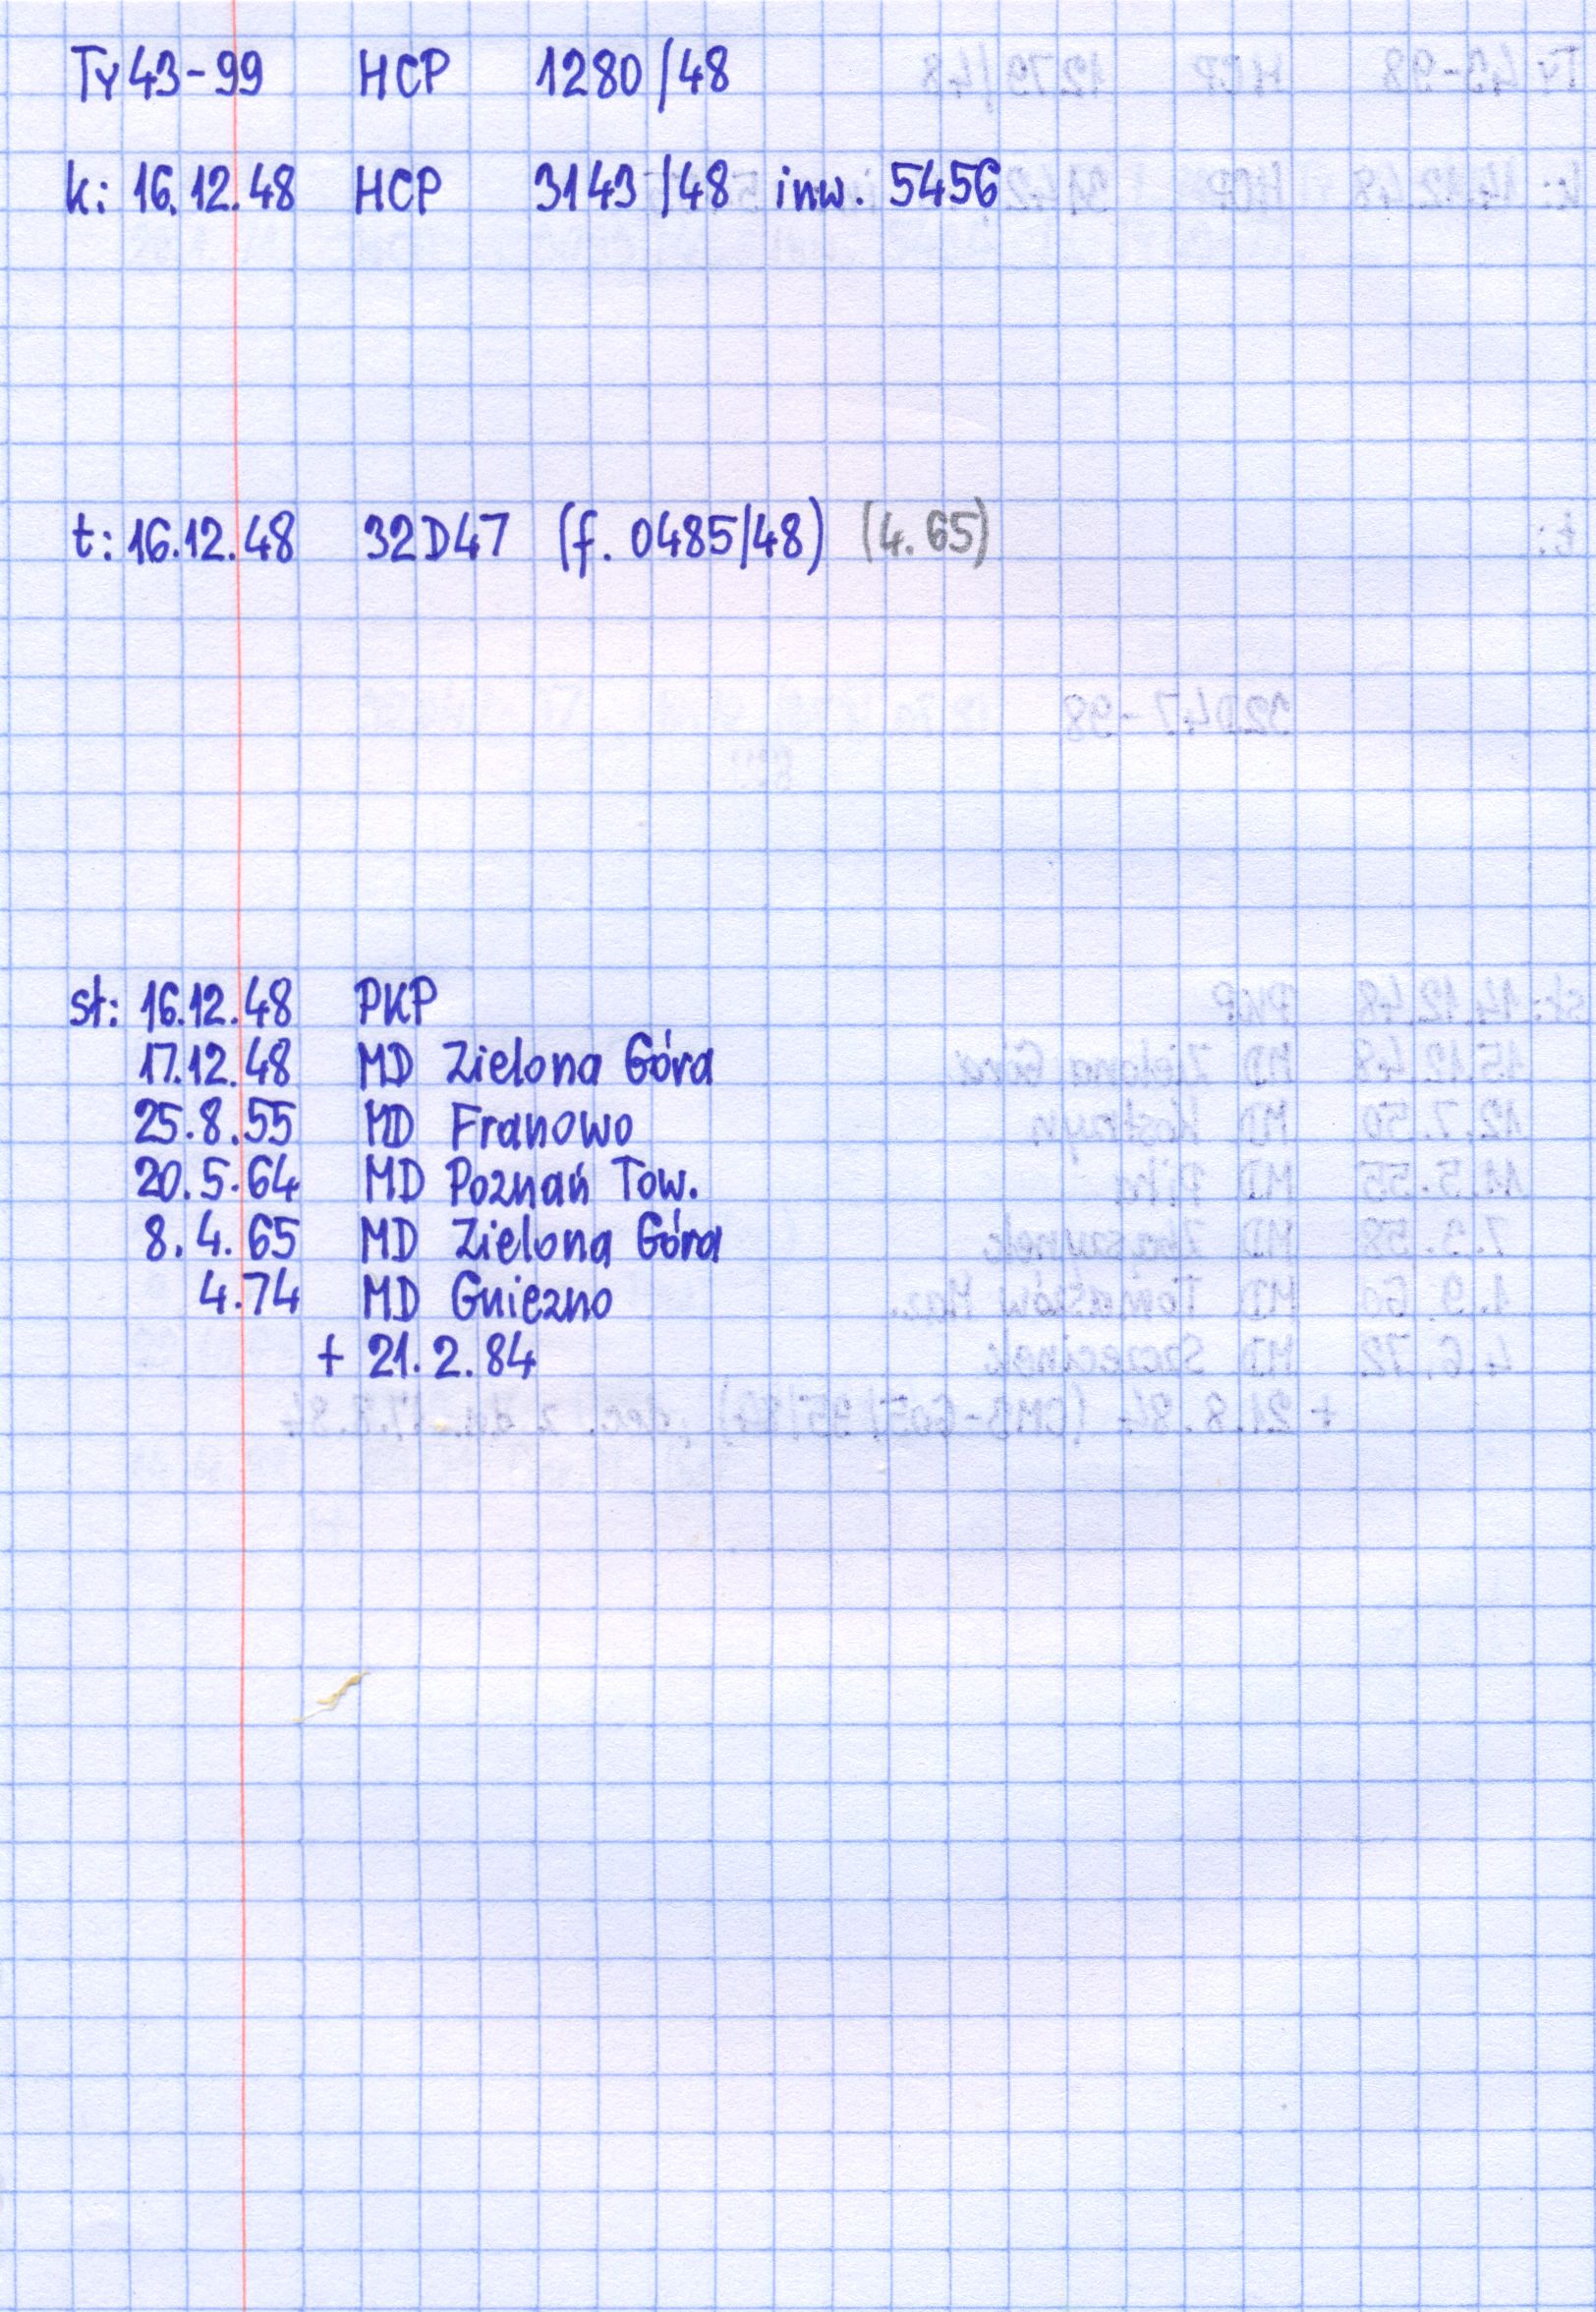 Ty43-99 HCP 1280/48
k: 16.12.48 HCP 3143/48 inw. 5456
t: 16.12.48 32D47 (f. 0485/48) (4.65)
st: 16.12.48 PKP
17.12.48 MD Zielona Góra
25.8.55 MD Franowo
20.5.64 MD Poznań Tow.
8.4.65 MD Zielona Góra
4.74 MD Gniezno
+ 21.2.84